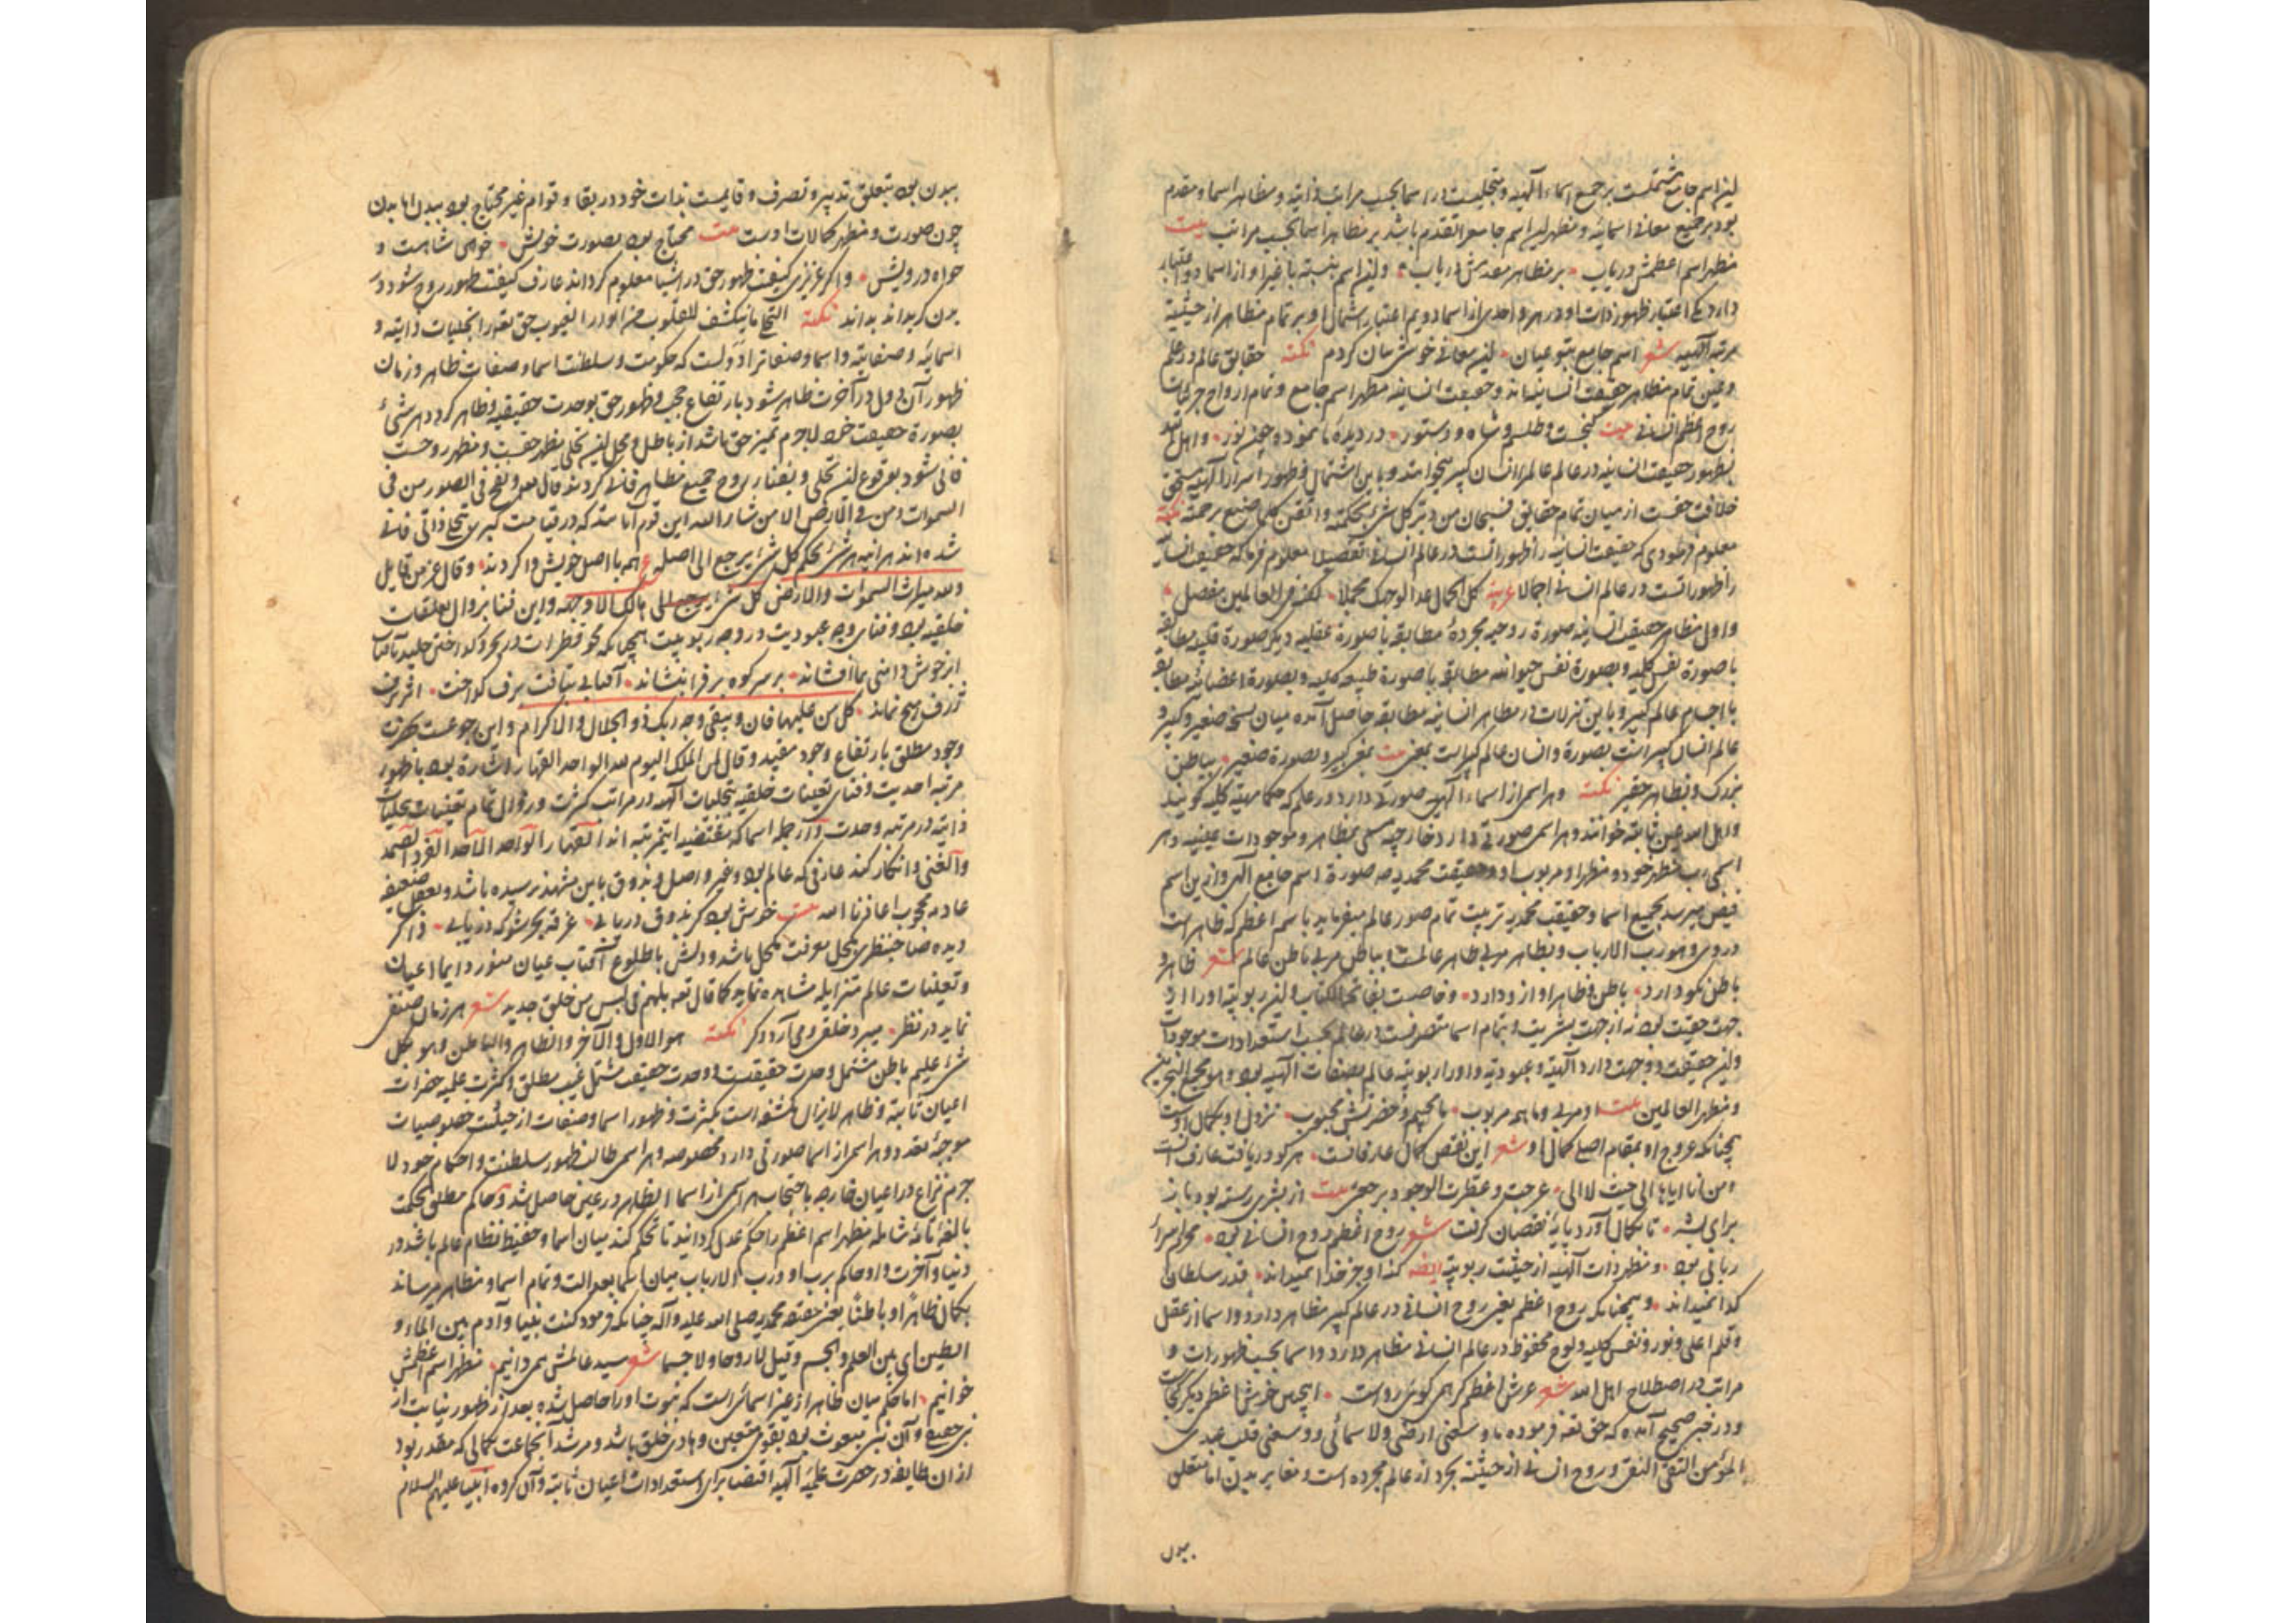 این اسم جامع مشتملست بر جمیع اسماء الهیه و متجلیست در اسما بحسب مراتب ذاتیه و مظاهر اسما و مقدم
بود بر جمیع معانی اسمائیه و مظهر این اسم جامع را تقدم باشد بر مظاهر اسما بحسب مراتب بیت
مظهر اسم اعظمش دریاب بر مظاهر مقدمش دریاب و این اسم بنسبت با غیر او از اسما دو اعتبار
دارد یکی اعتبار ظهور ذات او در هر واحدی از اسما دویم اعتبار اشتمال او بر تمام مظاهر از حیثیة
مرتبه الهیه شعر اسم جامع بتو عیان این معانی خوش بیان کردم نکته حقایق عالم در علم
و عین تمام مظاهر حقیقت انسانیه‌اند و حقیقت انسانیه مظهر اسم جامع و تمام ارواح جزئیات
روح اعظم انسانی بیت گنجست و طلسم و شاه و دستور در دیده ما نمود و چون نور و اهل الله
بظهور حقیقت انسانیه در عالم عالم را انسان کبیر میخوانند و باین اشتمال و ظهور اسرار الهیه مستحق
خلافت حقست از میان تمام حقایق فسبحان من دبر کل شیء بحکمته و اتقن کل ما صنع برحمته نکته
معلوم فرمودی که حقیقت انسانیه را ظهوراتست در عالم انسانی تفصیلا معلوم فرما که حقیقت انسانیه
را ظهوراتست در عالم انسانی اجمالا عربیه کل الجمال غدا لوجهک مجملا لکنه فی العالمین مفصل
و اولی مظاهر حقیقت انسانیه صورة روحیه مجرده مطابقه با صورة عقلیه دیگر صورة قلبیه مطابقه
با صورة نفس کلیه و بصورة نفس حیوانیه مطابقه با صورة طبیعه کلیه و بصورة اعضائیه مطابقه
با اجسام عالم کبیر و باین تنزلات در مظاهر انسانیه مطابقه حاصل آمده میان نسخه صغیر و کبیر و
عالم انسان کبیر است بصورة و انسان عالم کبیر است بمعنی بیت بمعنی کبیر و بصورة صغیر بباطن
بزرگ و بظاهر حقیر نکته و هر اسمی از اسماء الهی صورتی دارد در علم که حکما مهیه کلیه گویند
و اهل الله عین ثابته خوانند و هر اسمی صورتی دارد خارجیه مسمی بمظاهر و موجودات عینیه و هر
اسمی رب مظهر خود و مظهر او مربوب او و حقیقت محمدیه صلعم صورة اسم جامع الهی و ازین اسم
فیض میرسد بجمیع اسما و حقیقت محمدیه تربیت تمام صور عالم میفرماید باسم اعظم که ظاهر است
در وی و هو رب الارباب و بظاهر مربی ظاهر عالمست و بباطن مربی باطن عالم شعر ظاهر و
باطن نکو دارد باطن و ظاهر او از و دارد و خاصیت بفاتحة الکتاب و این ربوبیة او را از
جهت حقیقت بود نه از جهت بشریت و بتمام اسما متصرفست در عالم بحسب استعدادات موجودات
و این حقیقت دو جهت دارد الهیة و عبودیة و او را ربوبیة عالم بصفات الهیه بود و هو مجمع البحرین
و مظهر العالمین بیت او مربی و ما همه مربوب ما محبیم و حضرتش محبوب نزول او بکمال اوست
چنانکه عروج او بمقام اصلی کمال او شعر این نقص کمال عارفانست هر کو دریافت عارف آنست
و من انا ایاها الی حیث لا الی عرجت و عطرت الوجود برجعتی بیت از بشری رسته بود باز
برای بشر تا بکمال آورد پایه نقصان گرفت شعر روح اعظم روح انسانی بود محرم اسرار
ربانی بود و مظهر ذات الهیه از حیثیت ربوبیة ایضا کنه او جز خدا نمیداند قدر سلطان
گدا نمیداند و همچنانکه روح اعظم یعنی روح انسانی در عالم کبیر مظاهر دارد و اسما از عقل
و قلم اعلی و نور و نفس کلیه و لوح محفوظ در عالم انسانی مظاهر دارد و اسما بحسب ظهورات و
مراتب در اصطلاح اهل الله شعر عرش اعظم گر همی گوئی رواست اینچنین خوش اعظم دیگر کجاست
و در خبر صحیح آمده که حق تعالی فرموده ما وسعنی ارضی ولا سمائی و وسعنی قلب عبدی
المؤمن التقی النقی و روح انسانی از حیثیة تجرد از عالم مجرده است و مغایر بدن اما متعلق
ببدن
ببدن بود بتعلق تدبیر و تصرف و قایمست بذات خود در بقا و قوام غیر محتاج بود ببدن اما بدن
چون صورت و مظهر کمالات اوست بیت محتاج بود بصورت خویش خواهی شاهست و
خواه درویش و اگر عزیزی کیفیت ظهور حق در اشیا معلوم گرداند عارف کیفیت ظهور روح شود در
بدن گر بداند بداند نکته التجلی ما ینکشف للقلوب من انوار الغیوب حق تعالی را تجلیات ذاتیه و
اسمائیه و صفاتیه و اسما و صفات را دولیست که حکومت و سلطنت اسما و صفات ظاهر و زمان
ظهور آن دول در آخرت ظاهر شود بارتفاع حجب و ظهور حق بوحدت حقیقیه و ظاهر گردد هر شیء
بصورة حقیقت خود لاجرم تمیز حق باشد از باطل و محل این تجلی مظهر حقست و مظهر روحست
فانی شود بوقوع این تجلی و بفناء روح جمیع مظاهر فانی گردند قال تعالی و نفخ فی الصور من فی
السموات و من فی الارض الا من شاء الله این قوم اما مند که در قیامت کبری بتجلی ذاتی فانی
شده‌اند هرآینه هر شیء بحکم کل شیء یرجع الی اصله ع همه با اصل خویش وا گردند و قال عز من قایل
ولله میراث السموات والارض کل شیء یرجع الی هالک الا وجهه و این فنا بزوال تعلقات
خلقیه بود و فنای وجه عبودیت در وجه ربوبیت همچنانکه محو قطرات در بحر و گداختن جلید بآفتاب
از خوش دامنی ما افشاند بر سر کوه برف را بنشاند آفتابی بتافت برف گداخت اثر برف
ژرف هیچ نماند کل من علیها فان و یبقی وجه ربک ذو الجلال والاکرام و این رجوعست کثرت
وجود مطلق بارتفاع وجود مقید و قال لمن الملک الیوم لله الواحد القهار اشارة بود باظهور
مرتبه احدیت و فنای تعینات خلقیه بتجلیات الهیه در مراتب کثرت و زوال تمام تعینات بتجلیات
ذاتیه در مرتبه وحدت و از جمله اسما که مقتضیه این مرتبه‌اند القهار الواحد الاحد الفرد الصمد
والغنی و انکار کند عارفی که عالم بود و غیر واصل و بذوق باین مشهد نرسیده باشد و بعقل ضعیف
عادیه محجوب اعاذنا الله بیت خوش بود گر بذوق دریابی غرقه بحر شو که دریابی و اگر
دیده صاحبنظری بکحل معرفت مکحل باشد و دلش باطلوع آفتاب عیان منور دایما اعیان
و تعینات عالم متزایله مشاهده نماید کما قال تعالی بل هم فی لبس من خلق جدید شعر هر زمان صنفی
نماید در نظر میبرد خلقی و می‌آرد دگر نکته هو الاول والآخر والظاهر والباطن وهو بکل
شیء علیم باطن مشتمل وحدت حقیقیست و وحدت حقیقیه مشتمل غیب مطلق و کثرت علمیه حضرات
اعیان ثابته و ظاهر لایزال مکتنف است بکثرت و ظهور اسما و صفات از حیثیت خصوصیات
موجبه تعدد و هر اسمی از اسما صورتی دارد مخصوصه و هر اسمی طالب ظهور سلطنت و احکام خود لا
جرم نزاع در اعیان خارجیه باحتجاب هر اسمی از اسما الظاهر در عین حاصل شد و حاکم مطلق بحکمت
بالغه تامه شامله مظهر اسم اعظم را حکم عدل گردانید تا تحکم کند میان اسما و حفیظ نظام عالم باشد در
دنیا و آخرت و او حاکم برب او و رب الارباب میان اسما بعدالت و تمام اسما و مظاهر میرساند
بکمال ظاهرا و باطنا یعنی حقیقة محمدیه صلی الله علیه وآله چنانکه فرمود کنت نبیا و آدم بین الماء و
الطین ای بین العلم والجسم و قیل لا روحا و لا جسما شعر سید عالمش همی دانیم مظهر اسم اعظمش
خوانیم اما حکم میان ظاهر از عین اسمائی است که نبوت او را حاصل شده بعد از ظهور نیابت از
نبی حقیقی و آن نبی مبعوث بود بقومی معین و هادی خلق باشد و مرشد آنجماعت بکمالی که مقدر بود
از ان طایفه در حضرت علمیه الهیه اقتضای استعدادات اعیان ثابته و آن گروه انبیا علیهم السلام